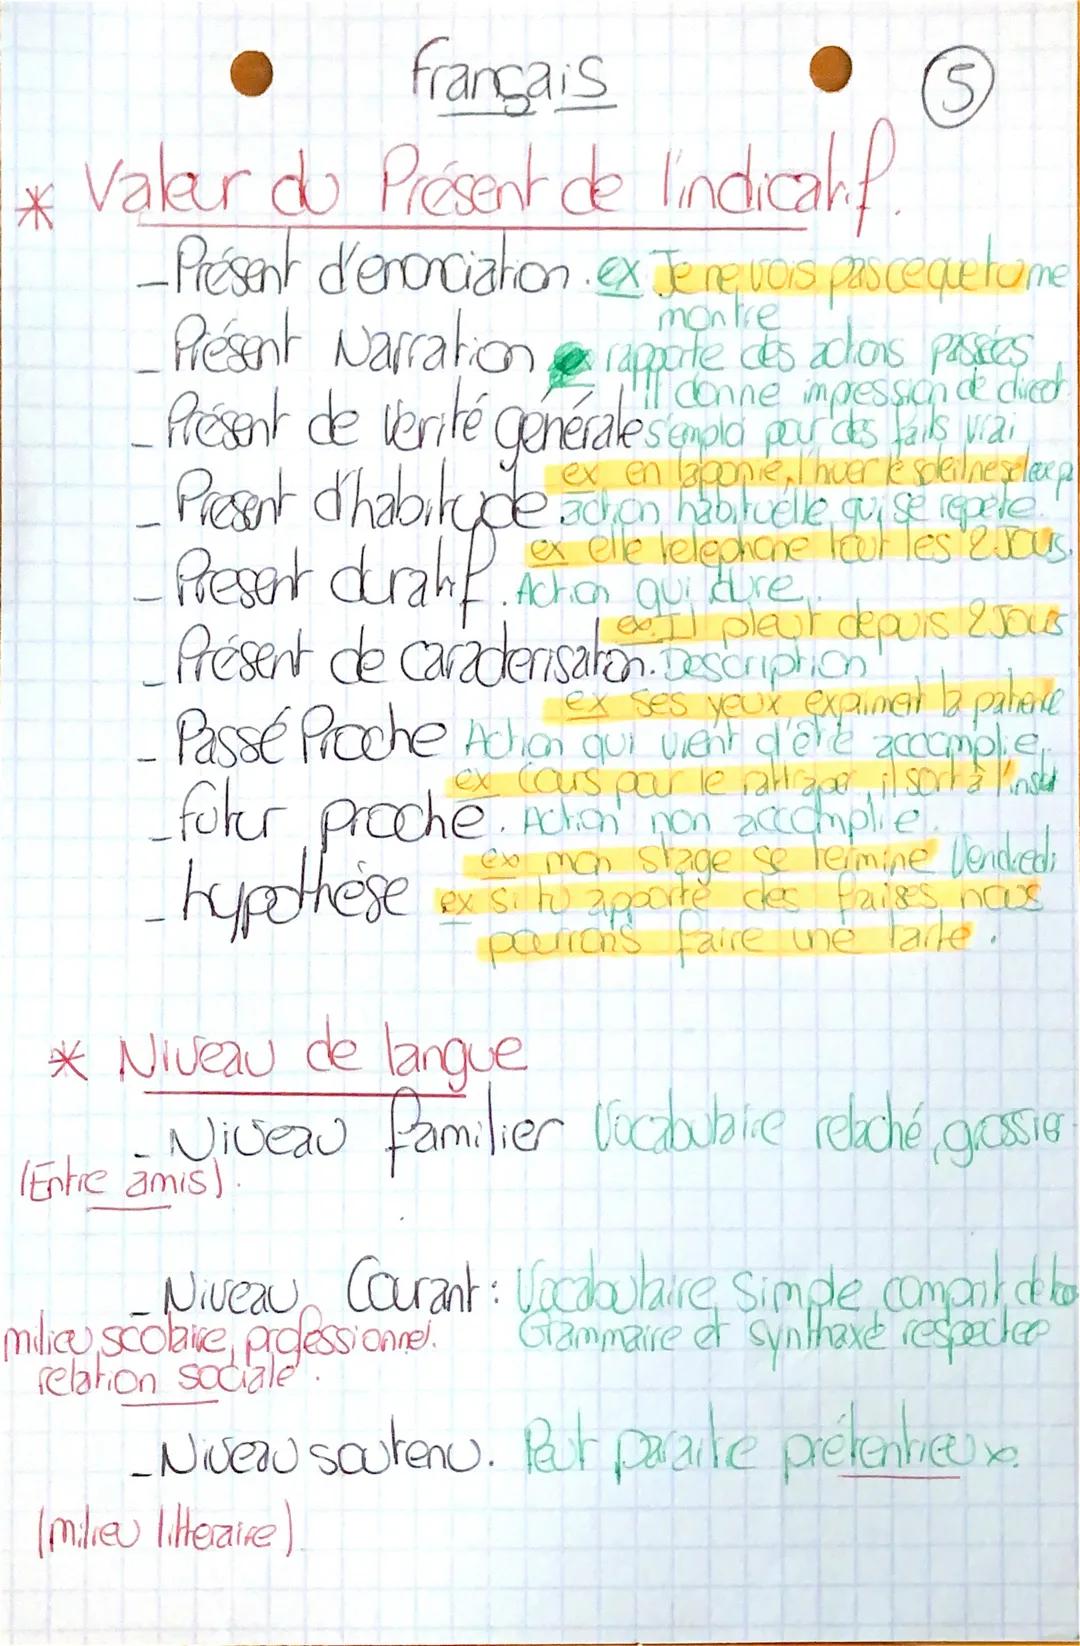 français
5
* Valeur du Présent de l'indicatif.
_ Présent d'enonciation. ex Je ne vois pas ce que tu me
montre
_ Présent Narration rapporte des actions passées
Il donne impression de direct
_ Présent de Verité générale s'emploi pour des faits vrai
ex en laponie, l'hiver le soleil ne se leve pa
_ Present d'habitude action habituelle qui se repete.
ex elle telephone tout les 2 Jours.
_ Present duratif. Action qui dure.
ex Il pleut depuis 2 Jours
_ Présent de caracterisation. Description
ex ses yeux expriment la patience
_ Passé Proche Action qui vient d'être accomplie,
ex Cours pour le rattraper, il sort à l'instant
_ futur proche. Action non accomplie.
ex mon stage se termine Vendredi
_ hypothèse ex si tu apporte des fraises nous
pourrons faire une tarte.
* Niveau de langue
_ Niveau familier Vocabulaire relaché, grossier
(Entre amis).
_ Niveau Courant : Vocabulaire Simple, de
milieu scolaire, professionnel. Grammaire et synthaxe respectee
relation sociale.
_ Niveau soutenu. Peut paraitre prétentieux.
(milieu litteraire)